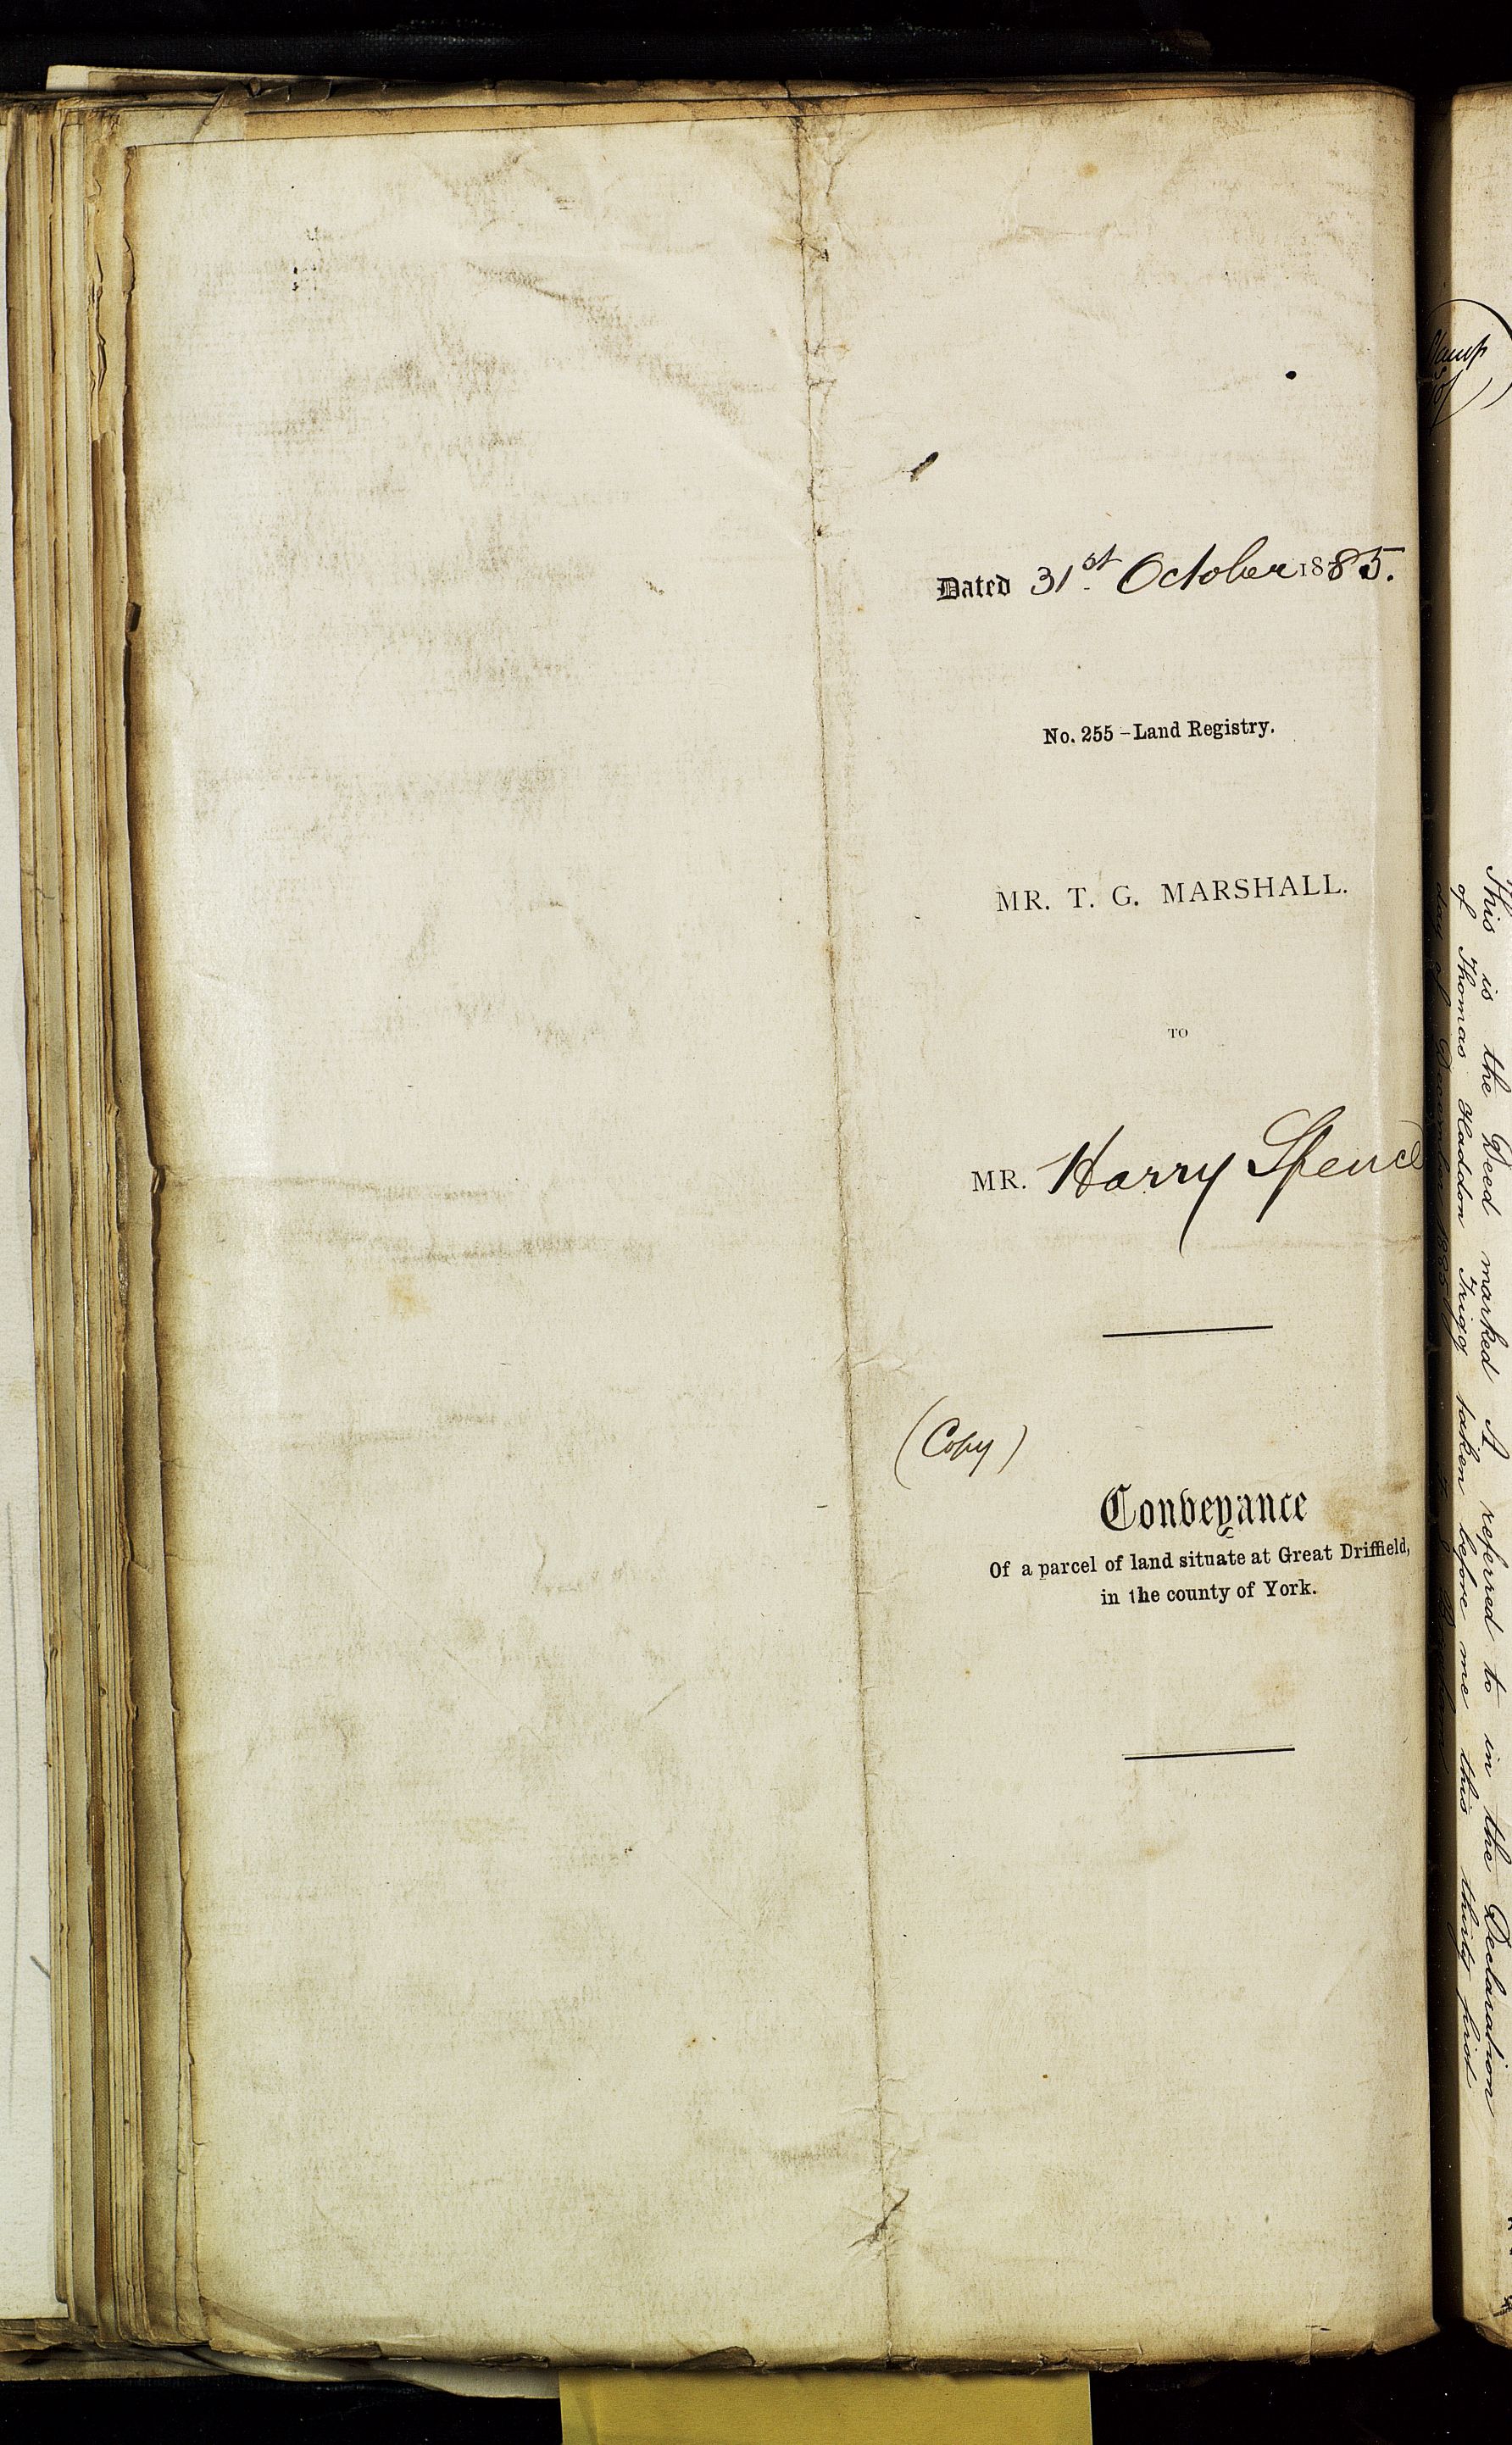 Dated 31st. October 1885.
No. 255 - Land Registry.
MR. T. G. MARSHALL.
TO
MR. Harry Spence
(Copy)
Conveyance
Of a parcel of land situate at Great Driffield,
in the county of York.
Stamp
This is the Deed marked A referred to in the Declaration
of Thomas Haddon Trigg taken before me this thirty first
day of December 1885